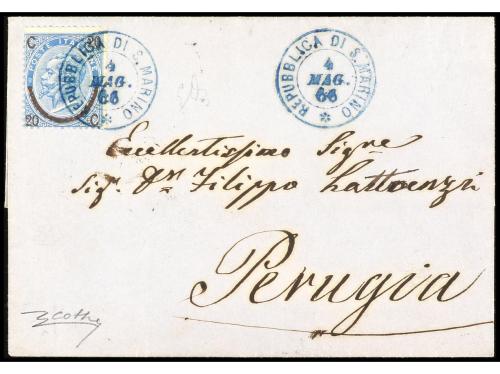 C 20
POSTE ITALIANE
20 C
REPUBBLICA DI S. MARINO
4
MAG.
66
REPUBBLICA DI S. MARINO
4
MAG.
66
Eccellentissimo Signe
Sig. Dn Filippo Lattanzi
Perugia